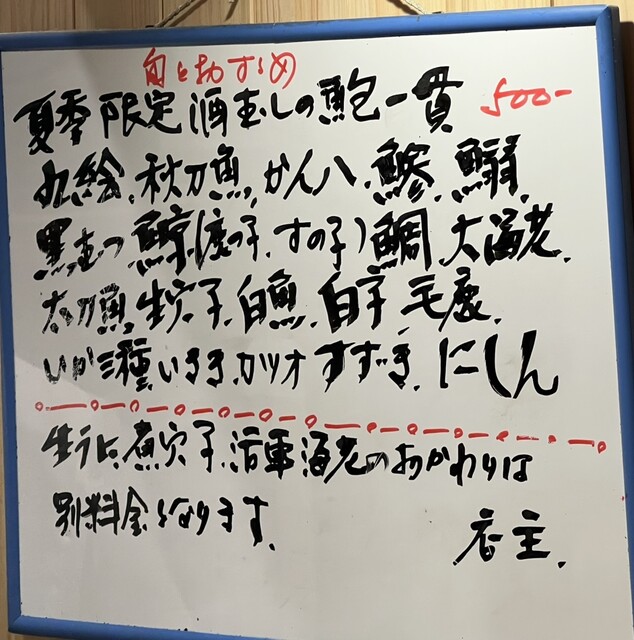 旬とおすすめ
夏季限定 酒むしの鮑一貫 500-
九絵、秋刀魚、かん八、鰺、鰯、
黒むつ、鯨(鹿の子、すの子)鯛、大海老、
太刀魚、生穴子、白魚、白子、毛鹿、
いか三種、いさき、カツオ、すずき、にしん
生うに、煮穴子、活車海老のおかわりは
別料金となります。
店主.